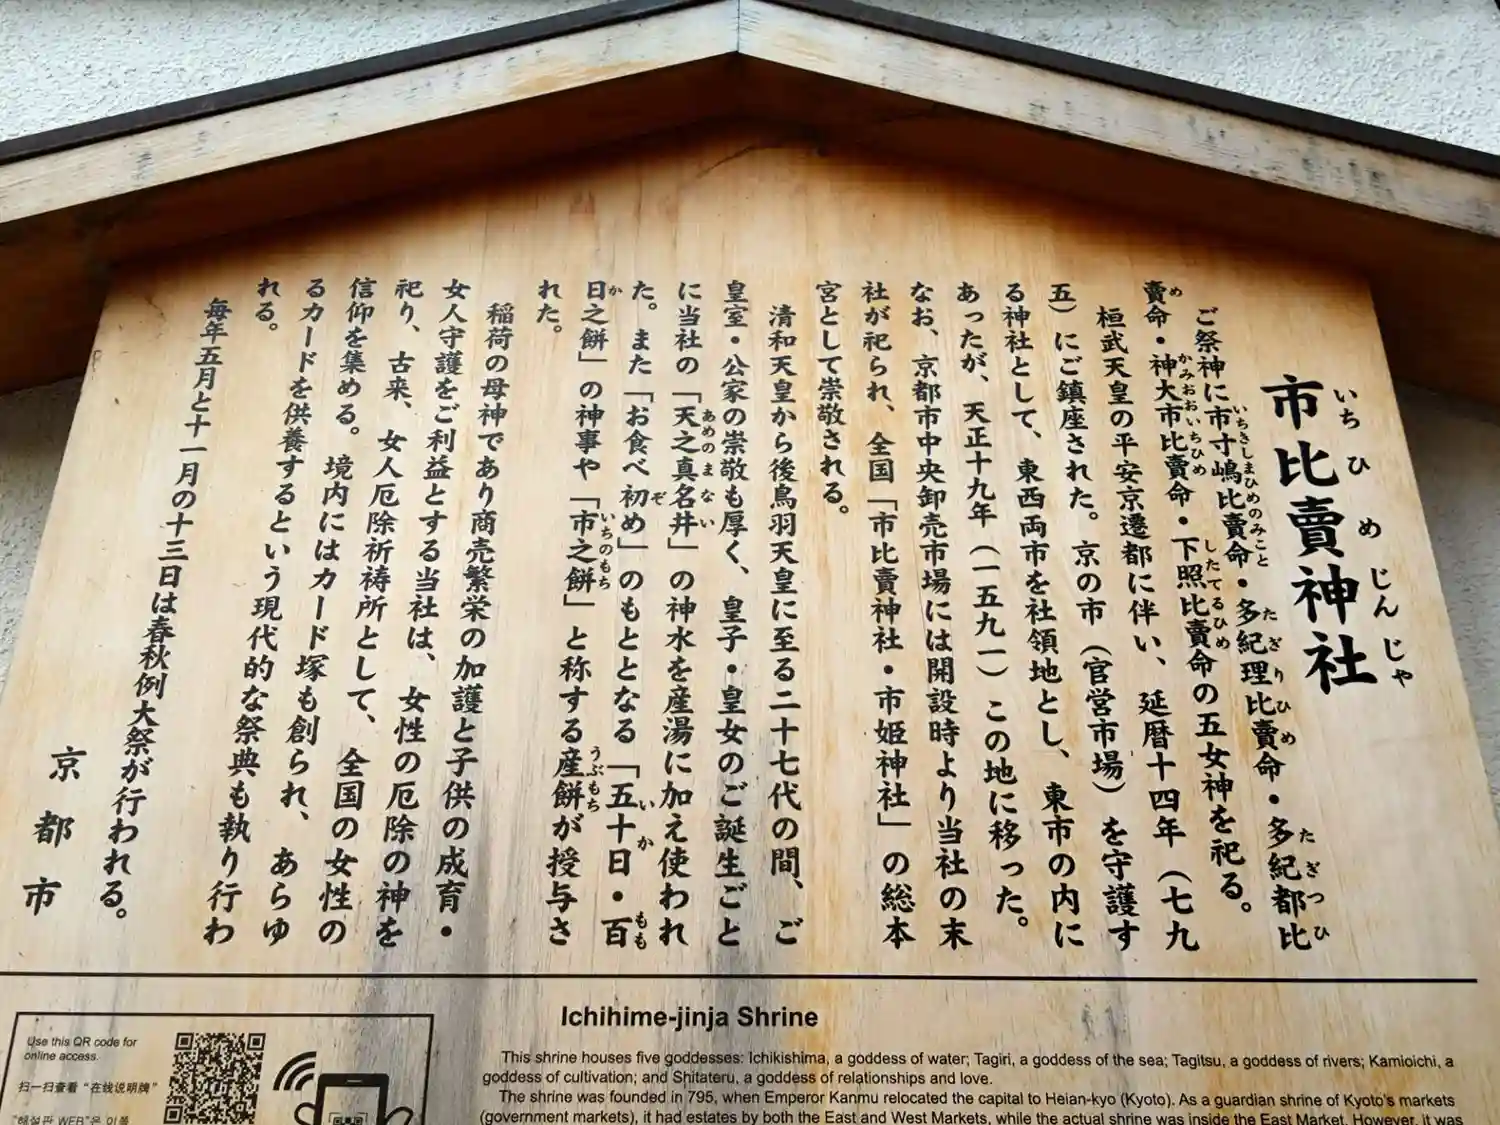 市比賣神社
いちひめじんじゃ
ご祭神に市寸嶋比賣命・多紀理比賣命・多紀都比
いちきしまひめのみこと たぎりひめ たぎつひ
賣命・神大市比賣命・下照比賣命の五女神を祀る。
め かみおおいちひめ したてるひめ
桓武天皇の平安京遷都に伴い、延暦十四年（七九
五）にご鎮座された。京の市（官営市場）を守護す
る神社として、東西両市を社領地とし、東市の内に
あったが、天正十九年（一五九一）この地に移った。
なお、京都市中央卸売市場には開設時より当社の末
社が祀られ、全国「市比賣神社・市姫神社」の総本
宮として崇敬される。
清和天皇から後鳥羽天皇に至る二十七代の間、ご
皇室・公家の崇敬も厚く、皇子・皇女のご誕生ごと
に当社の「天之真名井」の神水を産湯に加え使われ
あめのまない
た。また「お食べ初め」のもととなる「五十日・百
ぞ いか もも
日之餅」の神事や「市之餅」と称する産餅が授与さ
か いちのもち うぶもち
れた。
稲荷の母神であり商売繁栄の加護と子供の成育・
女人守護をご利益とする当社は、女性の厄除の神を
祀り、古来、女人厄除祈祷所として、全国の女性の
信仰を集める。境内にはカード塚も創られ、あらゆ
るカードを供養するという現代的な祭典も執り行わ
れる。
毎年五月と十一月の十三日は春秋例大祭が行われる。
京都市
Use this QR code for
online access.
扫一扫查看“在线说明牌”
Ichihime-jinja Shrine
This shrine houses five goddesses: Ichikishima, a goddess of water; Tagiri, a goddess of the sea; Tagitsu, a goddess of rivers; Kamioichi, a
goddess of cultivation; and Shitateru, a goddess of relationships and love.
The shrine was founded in 795, when Emperor Kanmu relocated the capital to Heian-kyo (Kyoto). As a guardian shrine of Kyoto's markets
(government markets), it had estates by both the East and West Markets, while the actual shrine was inside the East Market. However, it was